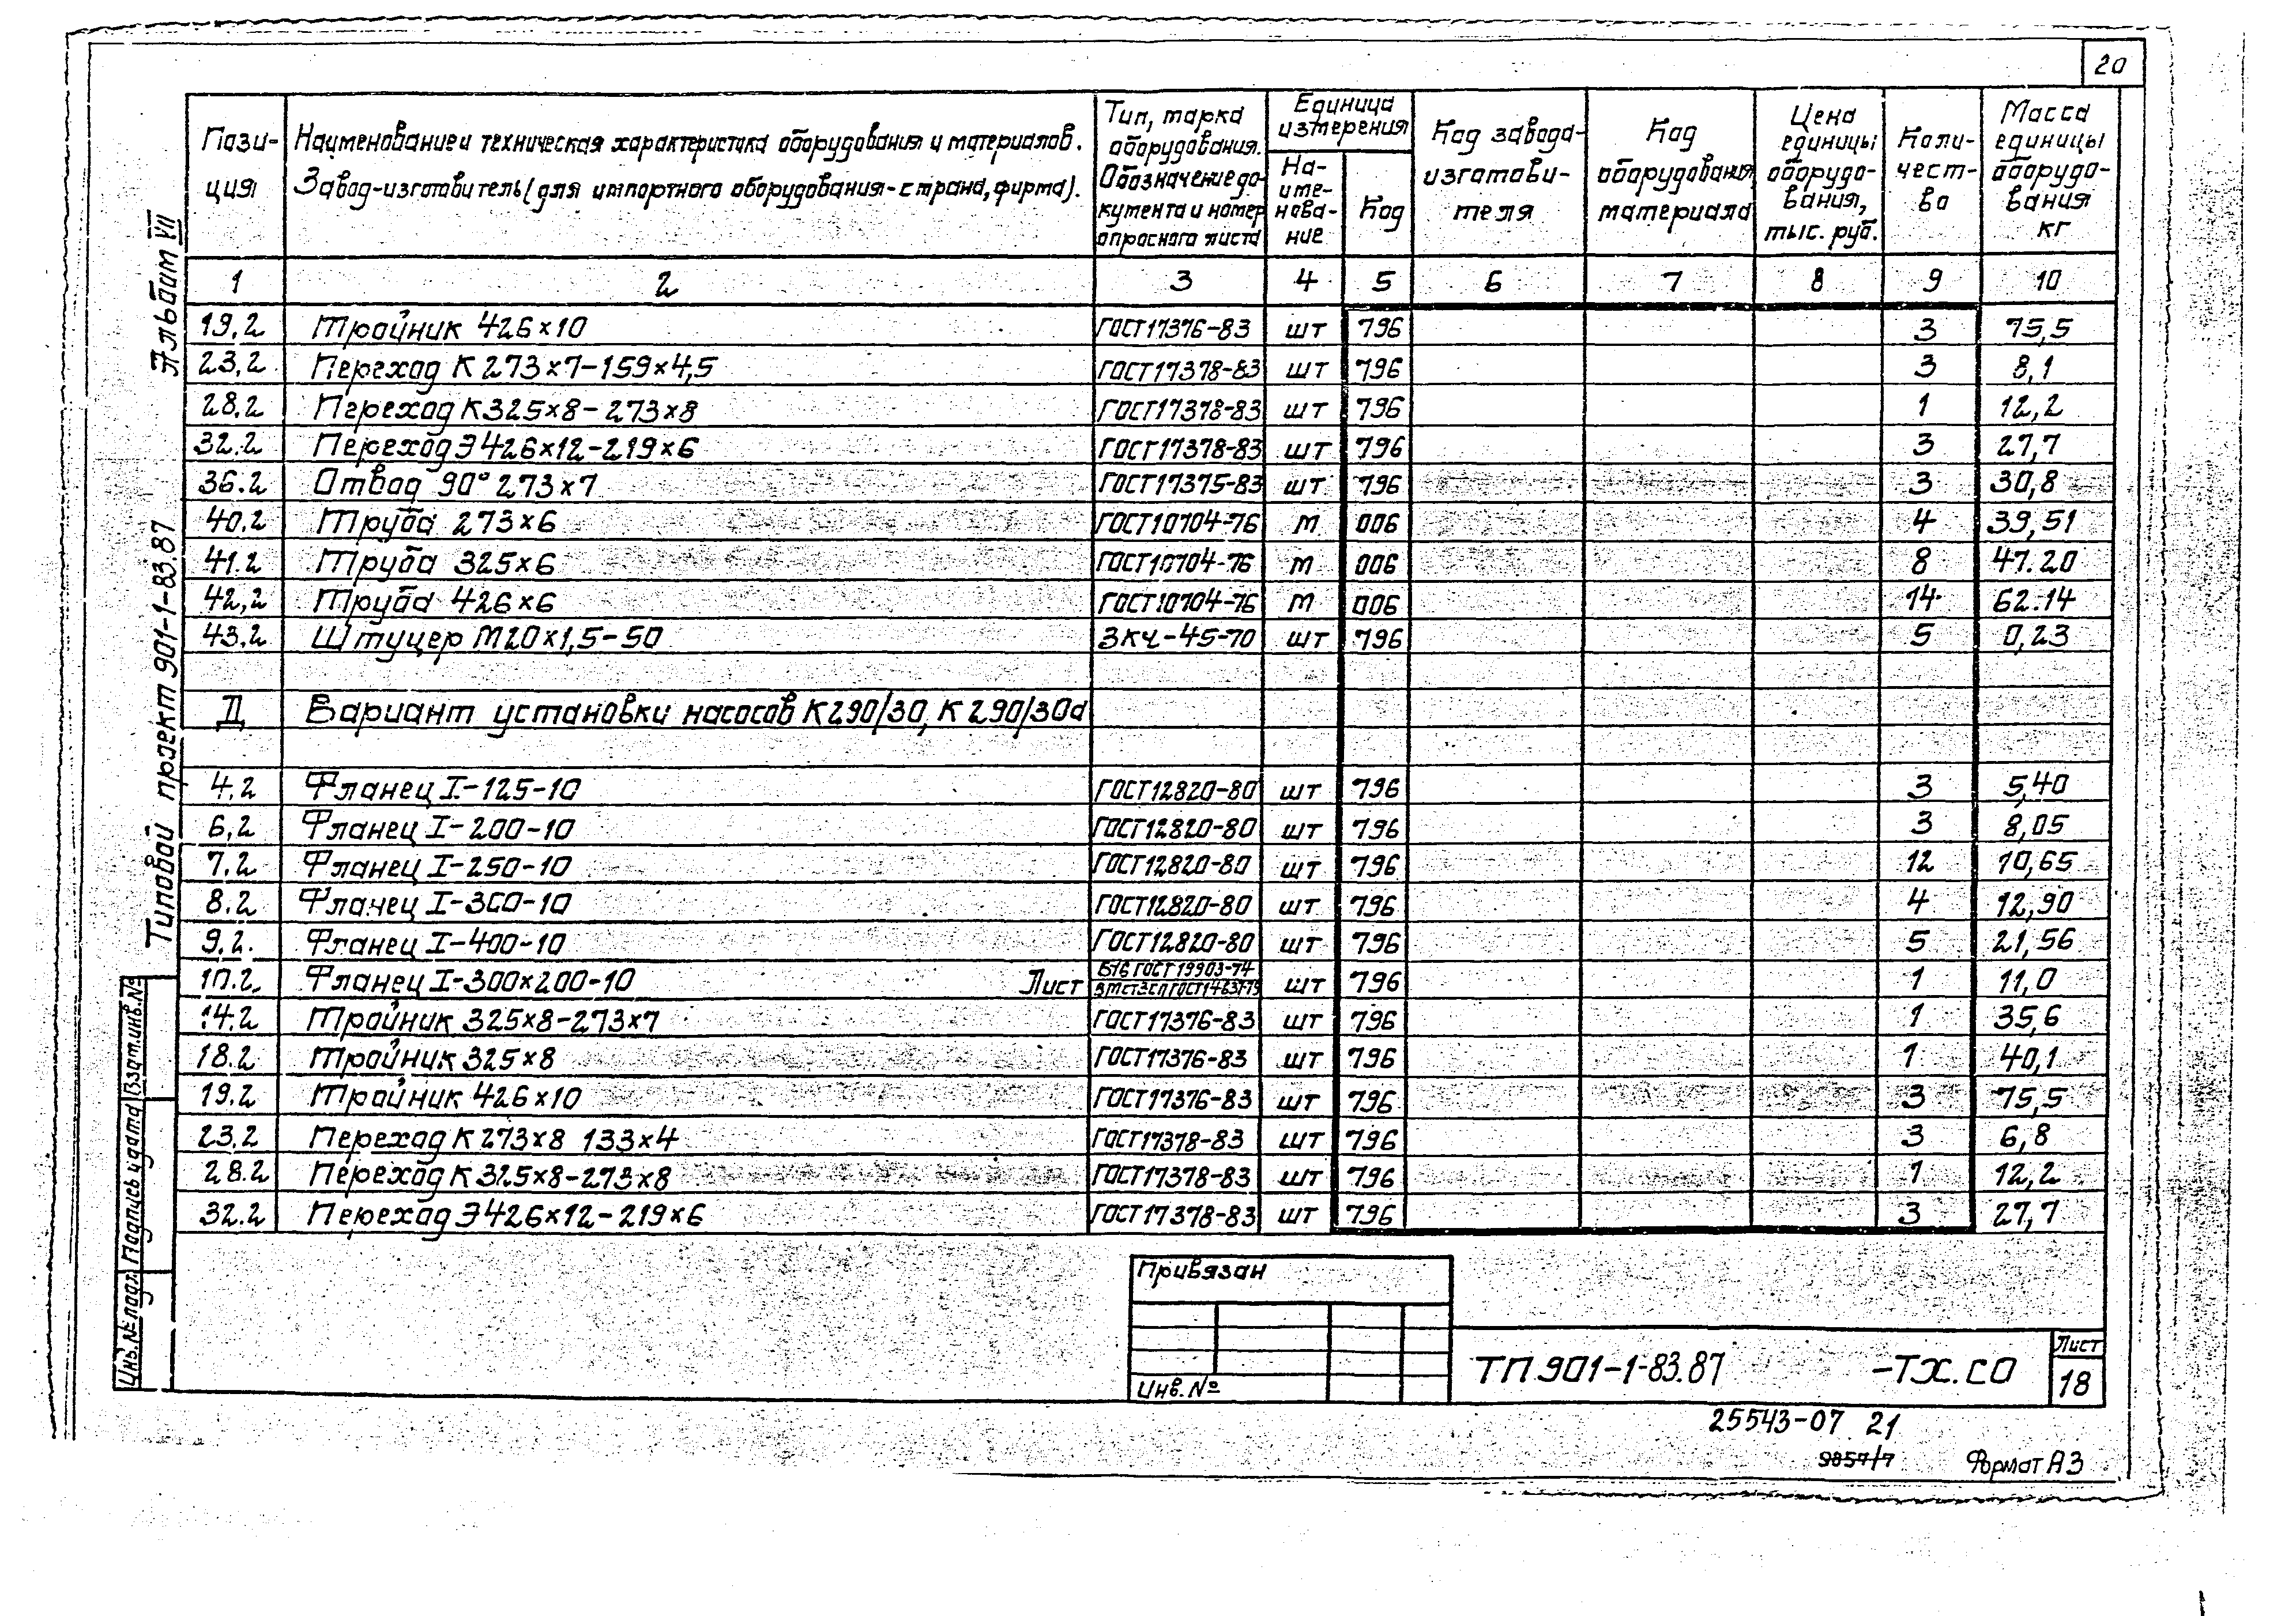 20
Пози-
ция
Наименование и техническая характеристика оборудования и материалов.
Завод-изготовитель (для импортного оборудования - страна, фирма).
Тип, марка
оборудования.
Обозначение до-
кумента и номер
опросного листа
Единица
измерения
На-
име-
нова-
ние
Код
Код завода-
изготови-
теля
Код
оборудования,
материала
Цена
единицы
оборудо-
вания,
тыс. руб.
Коли-
чест-
во
Масса
единицы
оборудо-
вания
кг
1 2 3 4 5 6 7 8 9 10
19.2 Тройник 426×10 ГОСТ 17376-83 шт 796 3 75,5
23.2 Переход К 273×7-159×4,5 ГОСТ 17378-83 шт 796 3 8,1
28.2 Переход К 325×8-273×8 ГОСТ 17378-83 шт 796 1 12,2
32.2 Переход Э 426×12-219×6 ГОСТ 17378-83 шт 796 3 27,7
36.2 Отвод 90° 273×7 ГОСТ 17375-83 шт 796 3 30,8
40.2 Труба 273×6 ГОСТ 10704-76 м 006 4 39,51
41.2 Труба 325×6 ГОСТ 10704-76 м 006 8 47.20
42,2 Труба 426×6 ГОСТ 10704-76 м 006 14 62.14
43.2 Штуцер М20×1,5-50 ЗКЧ-45-70 шт 796 5 0,23
Д Вариант установки насосов К 290/30, К 290/30а
4.2 Фланец I-125-10 ГОСТ 12820-80 шт 796 3 5,40
6,2 Фланец I-200-10 ГОСТ 12820-80 шт 796 3 8,05
7.2 Фланец I-250-10 ГОСТ 12820-80 шт 796 12 10,65
8.2 Фланец I-300-10 ГОСТ 12820-80 шт 796 4 12,90
9.2. Фланец I-400-10 ГОСТ 12820-80 шт 796 5 21,56
10.2. Фланец I-300×200-10 Лист Б16 ГОСТ 19903-74 шт 796 1 11,0
ВМСт3сп ГОСТ 14637-79
14.2 Тройник 325×8-273×7 ГОСТ 17376-83 шт 796 1 35,6
18.2 Тройник 325×8 ГОСТ 17376-83 шт 796 1 40,1
19.2 Тройник 426×10 ГОСТ 17376-83 шт 796 3 75,5
23.2 Переход К 273×8 133×4 ГОСТ 17378-83 шт 796 3 6,8
28.2 Переход К 325×8-273×8 ГОСТ 17378-83 шт 796 1 12,2
32.2 Переход Э 426×12-219×6 ГОСТ 17378-83 шт 796 3 27,7
Альбом VII
Типовой проект 901-1-83.87
Взам.инв.№
Подпись и дата
Инв.№ подл.
Привязан
Инв.№
ТП 901-1-83.87 -ТХ.СО
Лист
18
25543-07 21
9857/7
Формат А3